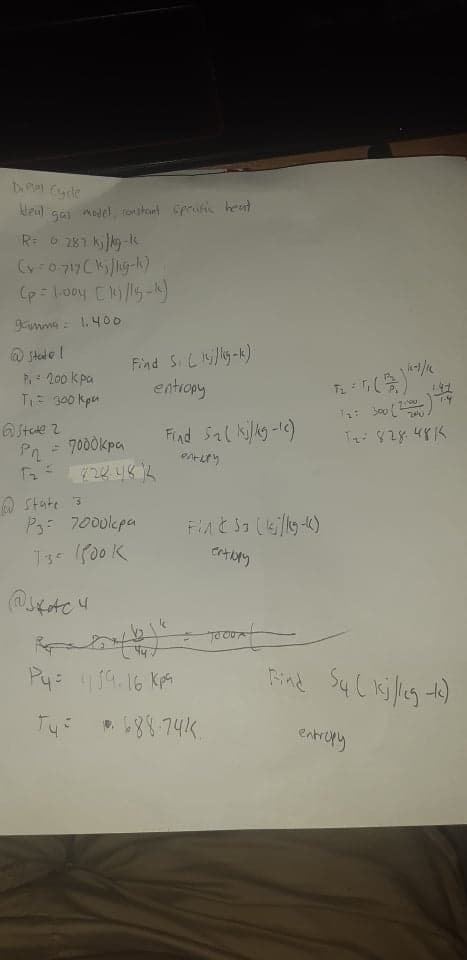 Diesel Cycle
Ideal gas model, constant specific heat
R= 0.287 kj/kg-k
Cv=0.717 (kj/kg-k)
Cp=1.004 [kj/kg-k)
gamma = 1.400
@ state 1
Find S1 (kj/kg-k)
entropy
P1 = 200 kpa
T1 = 300 kpa
T2 = T1 (P2/P1)^(k-1)/k
T2= 300 (7000/200)^(1.4-1/1.4)
T2= 828.48K
@ State 2
P2 = 7000kpa
T2 = 828.48 k
Find S2 (kj/kg-k)
entropy
@ State 3
P3= 7000kpa
T3= 1500K
Find S3 (kj/kg-k)
entropy
@State 4
P4= 459.16 Kpa
T4= 688.74K.
Find S4 (kj/kg-k)
entropy